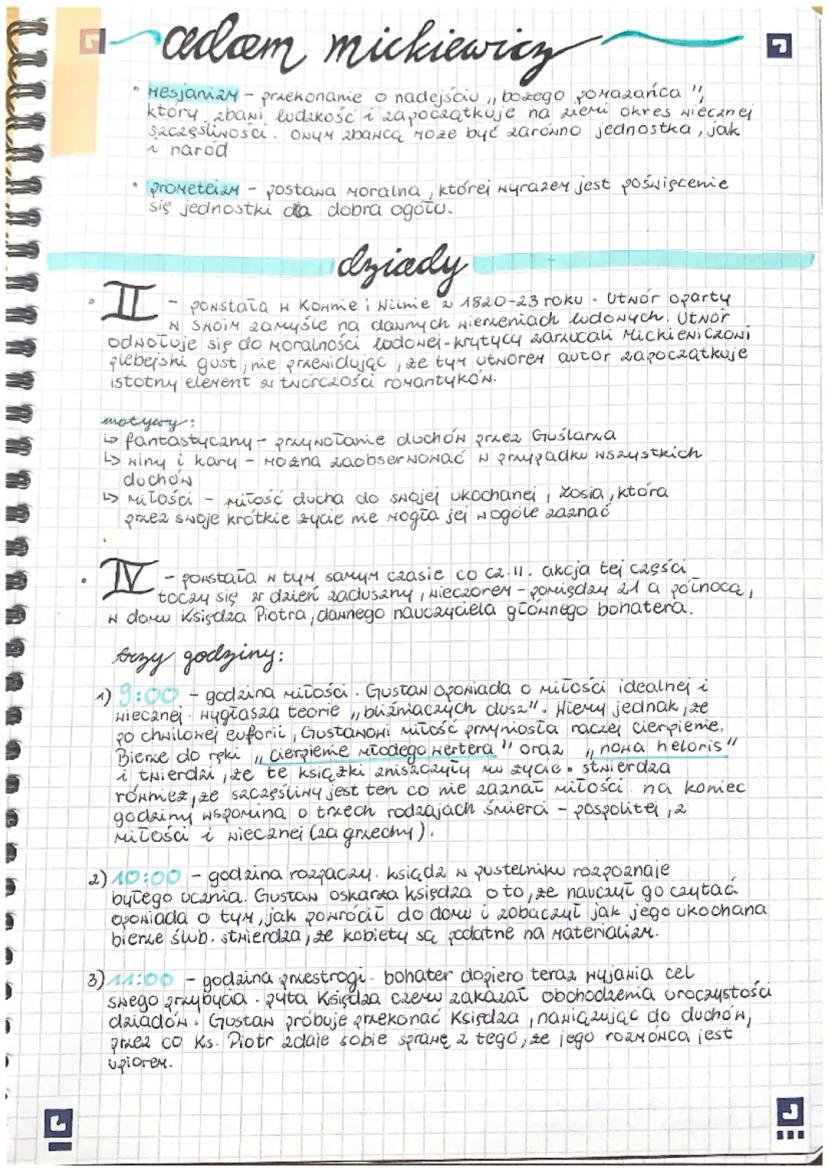 adam mickiewicz
• mesjanizm - przekonanie o nadejściu „bożego pomazańca",
który zbawi ludzkość i zapoczątkuje na ziemi okres wiecznej
szczęśliwości. Owym zbawcą może być zarówno jednostka, jak
i naród
• prometeizm - postawa moralna, której wyrazem jest poświęcenie
się jednostki dla dobra ogółu.
dziady
• II - powstała w Kownie i Wilnie w 1820-23 roku. Utwór oparty
w swoim zamyśle na dawnych wierzeniach ludowych. Utwór
odwołuje się do moralności ludowej - krytycy zarzucali Mickiewiczowi
plebejski gust, nie przewidując, że tym utworem autor zapoczątkuje
istotny element w twórczości romantyków.
motywy:
↳ fantastyczny - przywołanie duchów przez Guślarza
↳ winy i kary - można zaobserwować w przypadku wszystkich
duchów
↳ miłości - miłość ducha do swojej ukochanej, Zosia, która
przez swoje krótkie życie nie mogła jej wogóle zaznać
• IV - powstała w tym samym czasie co cz. II. akcja tej części
toczy się w dzień zaduszny, wieczorem - pomiędzy 21 a północą,
w domu Księdza Piotra, dawnego nauczyciela głównego bohatera.
trzy godziny:
1) 9:00 - godzina miłości. Gustaw opowiada o miłości idealnej i
wiecznej. wygłasza teorie „bliźniaczych dusz". Wiemy jednak, że
po chwilowej euforii, Gustawowi miłość przyniosła raczej cierpienie.
Bierze do ręki „cierpienie młodego wertera" oraz „nowa heloris"
i twierdzi, że te książki zniszczyły mu życie. stwierdza
również, że szczęśliwy jest ten co nie zaznał miłości. na koniec
godziny wspomina o trzech rodzajach śmierci - pospolitej, z
miłości i wiecznej (za grzechy).
2) 10:00 - godzina rozpaczy. ksiądz w pustelniku rozpoznaje
byłego ucznia. Gustaw oskarża księdza o to, że nauczył go czytać.
opowiada o tym, jak powrócił do domu i zobaczył jak jego ukochana
bierze ślub. stwierdza, że kobiety są podatne na materializm.
3) 11:00 - godzina przestrogi. bohater dopiero teraz wyjawia cel
swego przybycia. pyta Księdza czemu zakazał obchodzenia uroczystości
dziadów. Gustaw próbuje przekonać Księdza, nawiązując do duchów,
przez co Ks. Piotr zdaje sobie sprawę z tego, że jego rozmówca jest
upiorem.